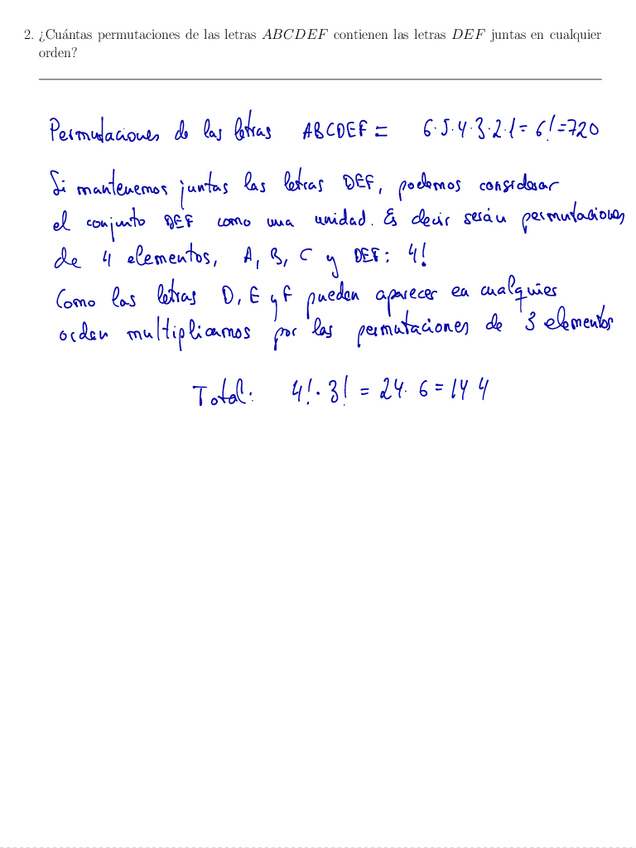 2. ¿Cuántas permutaciones de las letras ABCDEF contienen las letras DEF juntas en cualquier
orden?
Permutaciones de las letras ABCDEF = 6·5·4·3·2·1 = 6! = 720
Si mantenemos juntas las letras DEF, podemos considerar
el conjunto DEF como una unidad. Es decir serán permutaciones
de 4 elementos, A, B, C y DEF: 4!
Como las letras D, E y F pueden aparecer en cualquier
orden multiplicamos por las permutaciones de 3 elementos
Total: 4! · 3! = 24 · 6 = 144